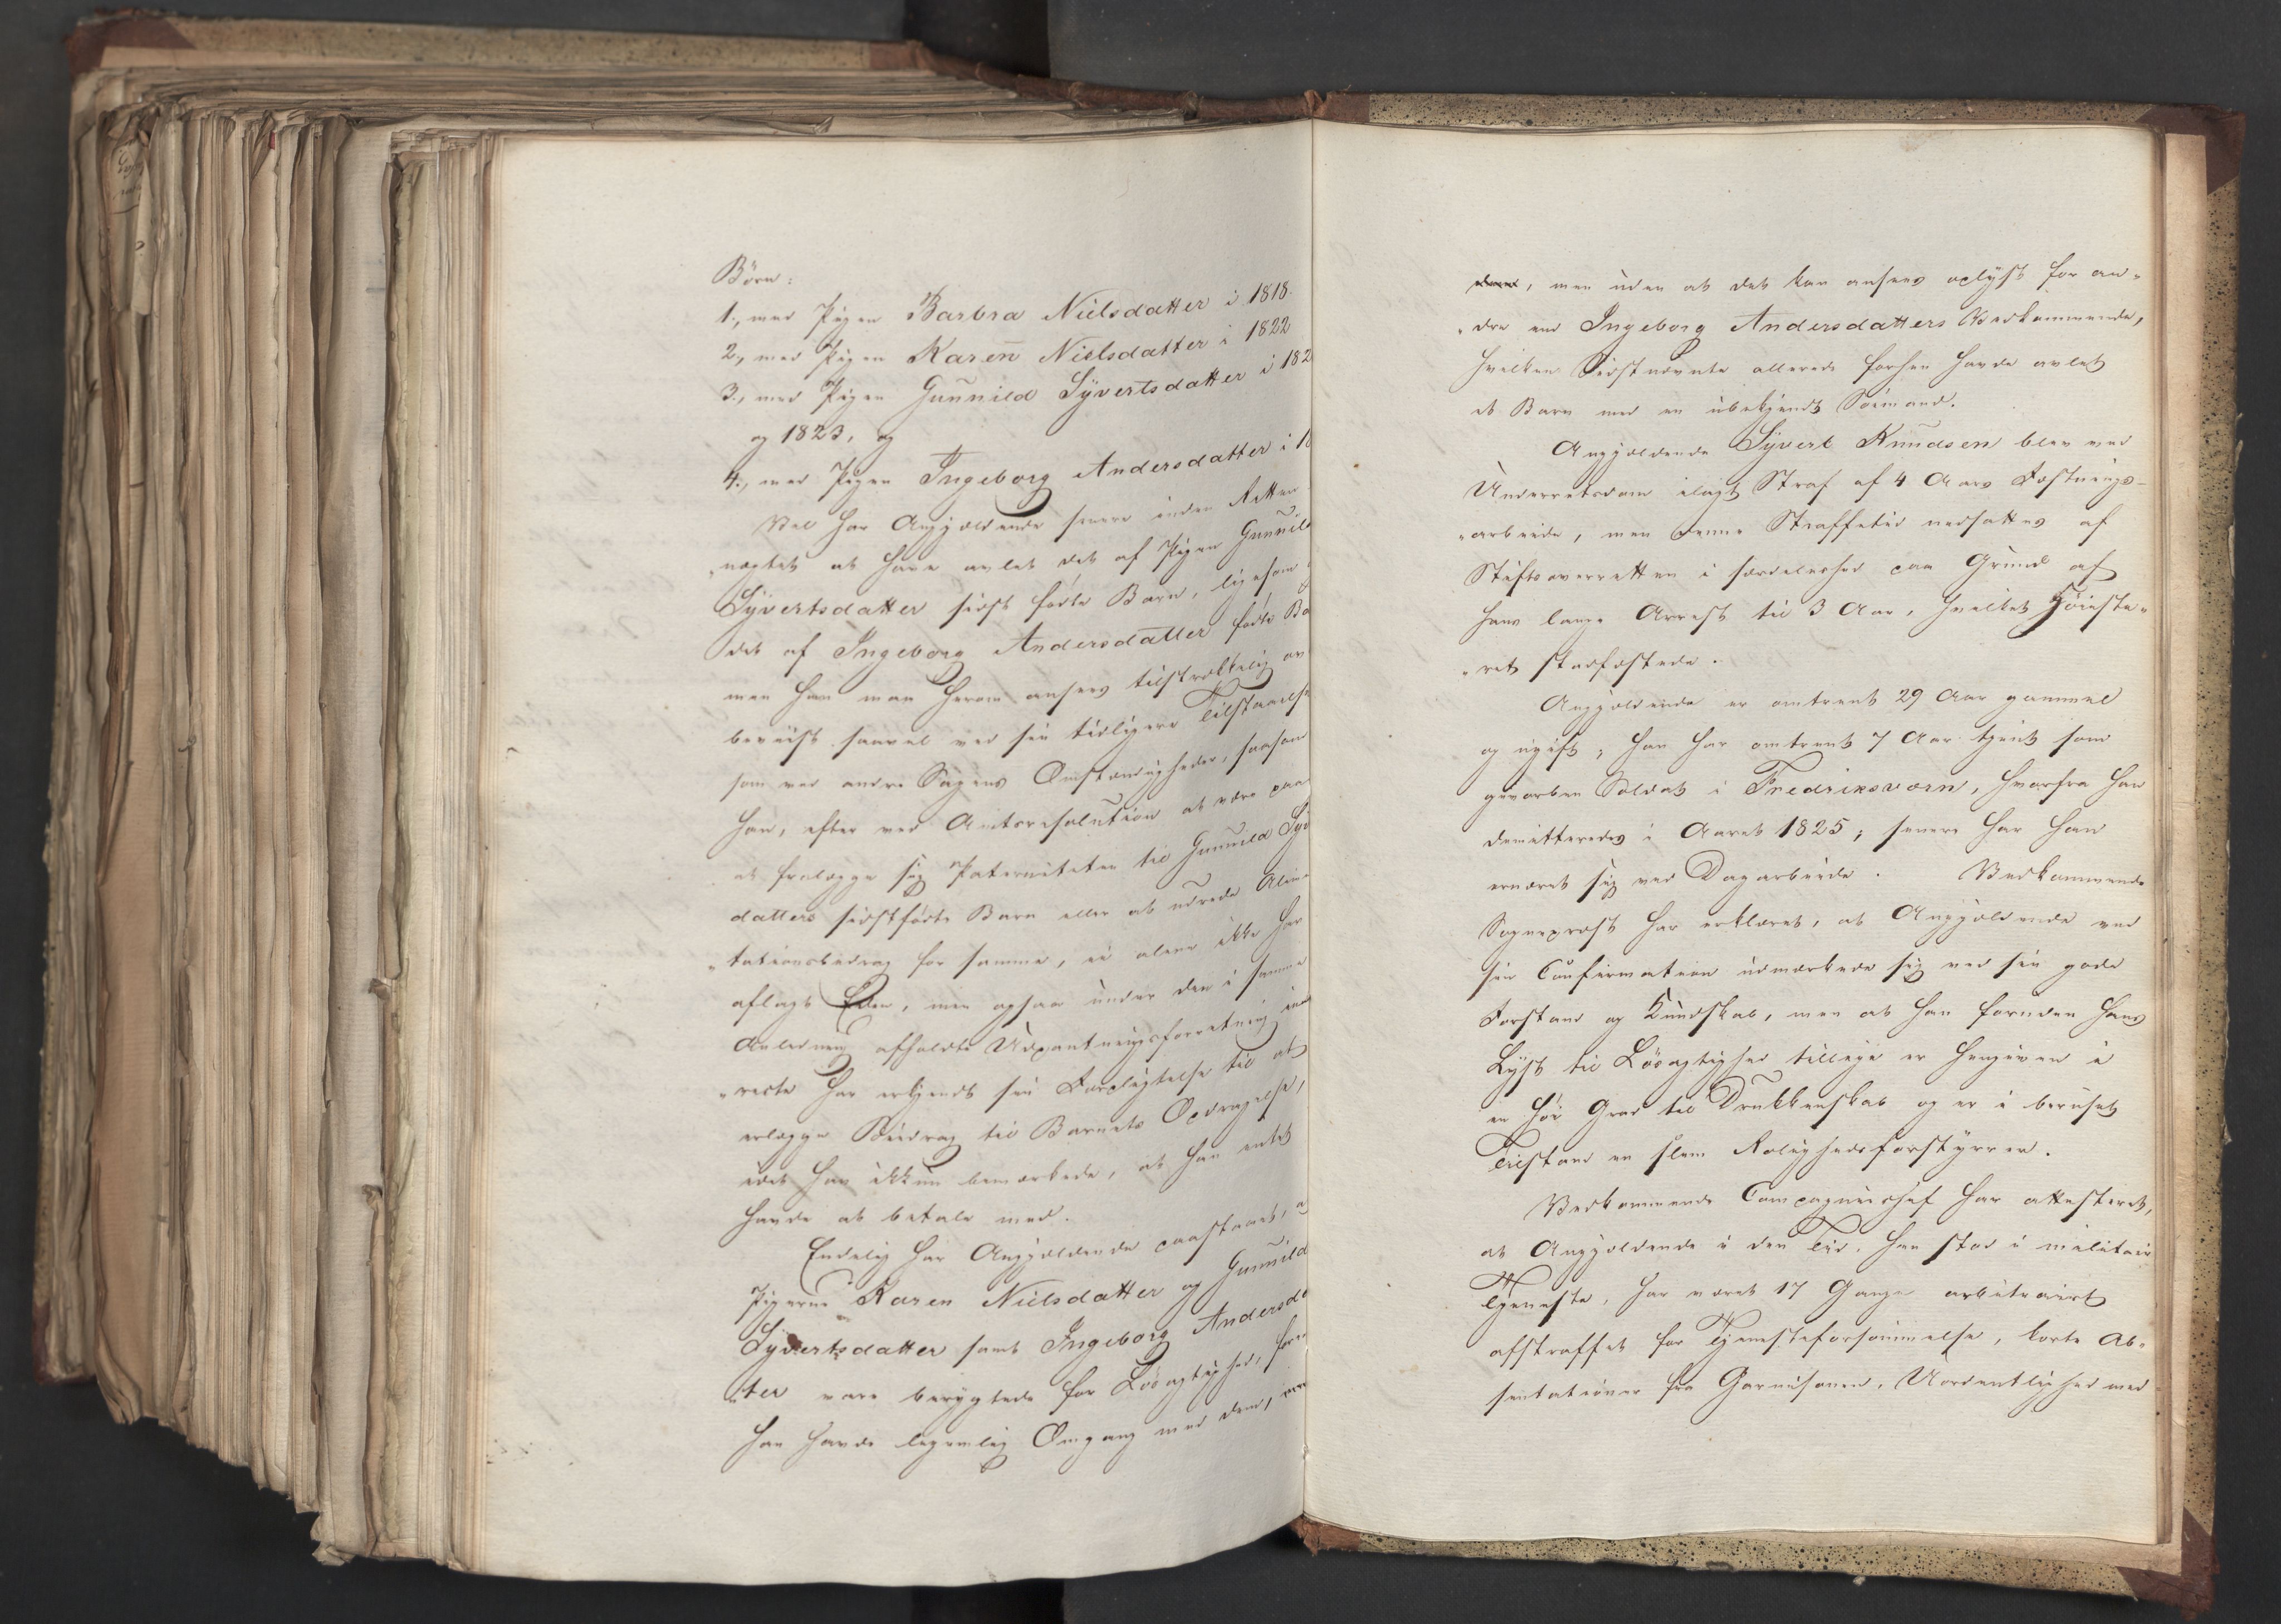 Börn:
1., med Pigen Barbra Nielsdatter i 1818.
2., med Pigen Karen Nielsdatter i 1822
3., med Pigen Gunnild Syvertsdatter i 182
og 1823, og
4., med Pigen Ingeborg Andersdatter i 1
Vel har Angjældende senere inden Retten
„nægtet at have avlet det af Pigen Gunnild
Syvertsdatter sidst fødte Barn, ligesom
det af Ingeborg Andersdatter fødte Ba
men han maa herom ansees tilstrækkelig ov
beviist saavel ved sin tidligere Tilstaaelse
som ved andre Sagens Omstændigheder, saasom
han, efter ved Amtsresolution at være paa
at fralægge sig Paterniteten til Gunnild Syv
datters sidstfødte Barn eller at udrede Alim
„tationsbidrag for samme, ei alene ikke har
aflagt Eden, men ogsaa under den i samme
Anledning afholdte Udpantningsforretning ind
„recte har erkjendt sin Forpligtelse til at
erlægge Bidrag til Barnets Opdragelse,
idet han ikkun bemærkede, at han intet
havde at betale med.
Endelig har Angjældende paastaaet, a
Pigerne Karen Nielsdatter og Gunnild
Syvertsdatter samt Ingeborg Andersda
„ter vare berygtede for Løsagtighed, før
han havde legemlig Omgang med dem,
, men uden at det kan ansees oplyst for an„
„dre end Ingeborg Andersdatters Vedkommende,
hvilken Sidstnævnte allerede forhen havde avlet
et Barn med en ubekjendt Sømand.
Angjældende Syvert Knudsen blev ved
Underretsdom ilagt Straf af 4 Aars Fæstnings-
„arbeide, men denne Straffetid nedsattes af
Stiftsoverretten i særdeleshed paa Grund af
hans lange Arrest til 3 Aar, hvilket Høieste„
„ret stadfæstede.
Angjældende er omtrent 29 Aar gammel
og ugift; han har omtrent 7 Aar tjent som
gevorben Soldat i Fredriksværn, hvorfra han
demitteredes i Aaret 1825; senere har han
ernæret sig ved Dagarbeide. Vedkommende
Sognepræst har erklæret, at Angjældende ved
sin Confirmation udmærkede sig ved sin gode
Forstand og Kundskab, men at han foruden hans
Lyst til Løsagtighed tillige er hengiven i
en høi Grad til Drukkenskab og er i beruset
Tilstand en slem Rolighedsforstyrrer.
Vedkommende Compagniechef har attesteret,
at Angjældende i den Tid, han stod i militair
Tjeneste, har været 17 Gange arbitrairt
afstraffet for Tjenesteforsømmelse, korte Ab„
sentationer fra Garnisonen, Uordentlighed med